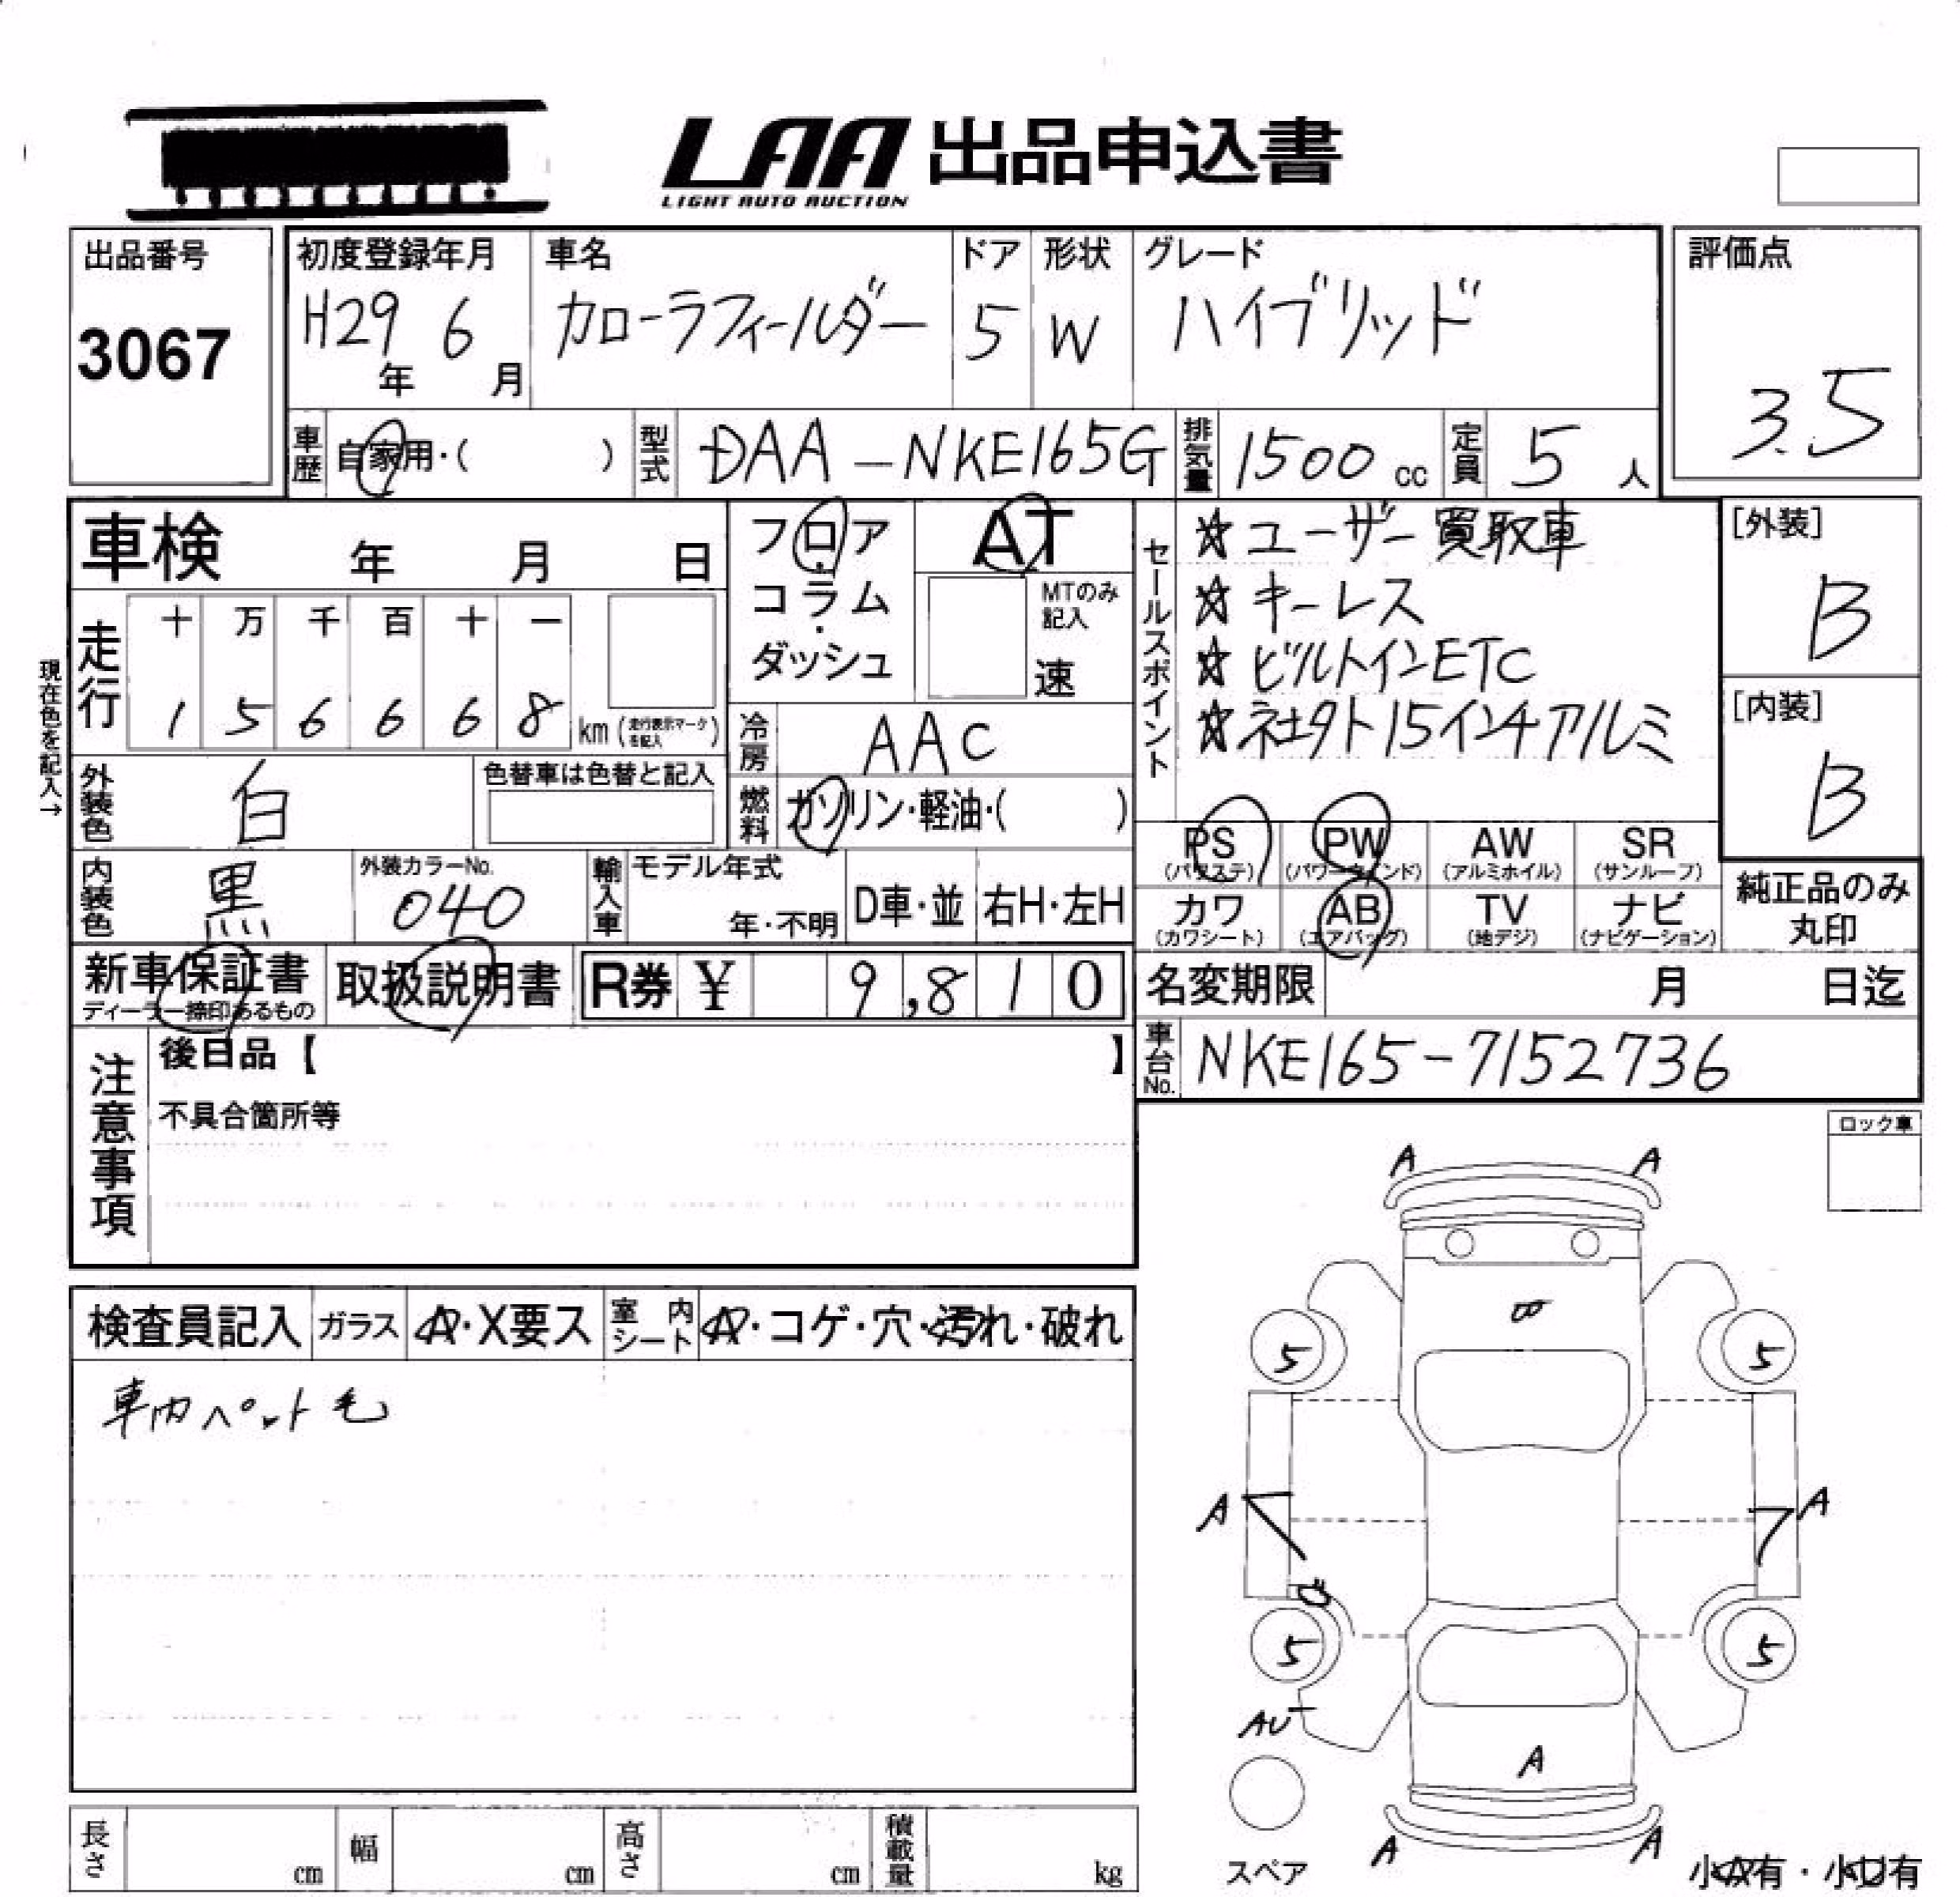 LAA 出品申込書
LIGHT AUTO AUCTION
出品番号
3067
初度登録年月
H29年 6月
車名
カローラフィールダー
ドア
5
形状
W
グレード
ハイブリッド
評価点
3.5
車歴
自家用・( )
型式
DAA-NKE165G
排気量
1500 cc
定員
5 人
車検 年 月 日
フロア・コラム・ダッシュ
AT
MTのみ記入
速
セールスポイント
☆ユーザー買取車
☆キーレス
☆ビルトインETC
☆社外15インチアルミ
[外装]
B
[内装]
B
現在色を記入→
走行
十 万 千 百 十 一
1 5 6 6 6 8 km (走行表示マークを記入)
冷房
AAC
外装色
白
色替車は色替と記入
燃料
ガソリン・軽油・( )
内装色
黒
外装カラーNo.
040
輸入車
モデル年式
年・不明
D車・並
右H・左H
PS (パワステ)
PW (パワーウインド)
AW (アルミホイル)
SR (サンルーフ)
カワ (カワシート)
AB (エアバッグ)
TV (地デジ)
ナビ (ナビゲーション)
純正品のみ丸印
新車保証書
ディーラー捺印あるもの
取扱説明書
R券 ¥ 9,810
名変期限 月 日迄
車台No.
NKE165-7152736
注意事項
後日品【 】
不具合箇所等
ロック車
検査員記入
ガラス
A・X要ス
室内シート
A・コゲ・穴・汚れ・破れ
車内ペット毛
A A
5 5
A A
5 5
AU
A
A A
スペア
長さ cm
幅 cm
高さ cm
積載量 kg
小A有・小U有